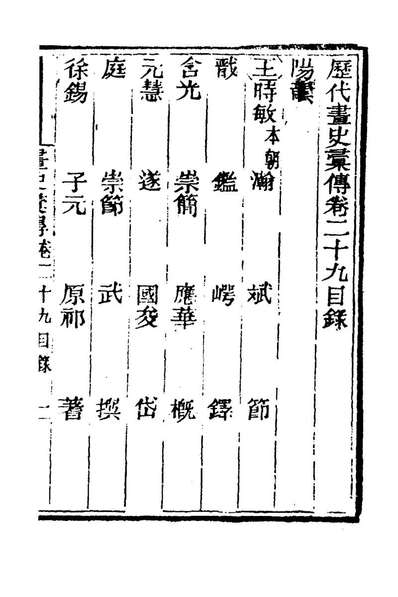 歷代畫史彙傳卷二十九目錄
陽韻
王時敏本朝 瀚 斌 節
戩 鑑 崿 鐸
含光 崇簡 應華 概
元慧 遂 國㕙 岱
庭 崇節 武 撰
徐錫 子元 原祁 蓍
畫史彙傳卷二十九目錄 一